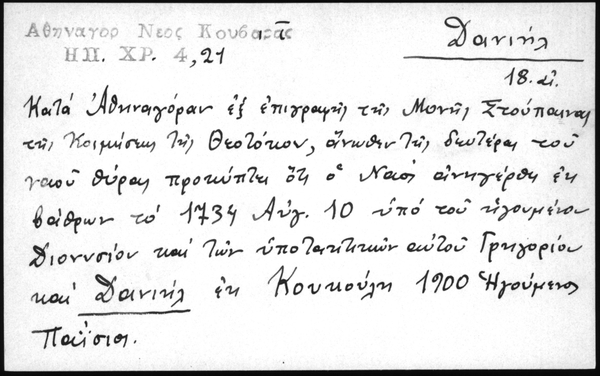 Αθηναγορ Νεος Κουβαρας τ̅
ΗΠ. ΧΡ. 4, 21
Δανιήλ
18. αἰ.
Κατά Ἀθηναγόραν ἐξ ἐπιγραφῆς τῆς Μονῆς Στούπαινας
τῆς Κοιμήσεως τῆς Θεοτόκου, ἄνωθεν τῆς δευτέρας τοῦ
ναοῦ θύρας προκύπτει ὅτι ὁ Ναός ἀνηγέρθη ἐκ
βάθρων τό 1734 Αὐγ. 10 ὑπό τοῦ ἡγουμένου
Διονυσίου καί τῶν ὑποτακτικῶν αὐτοῦ Γρηγορίου
καί Δανιήλ ἐκ Κουκούλη 1900 Ἡγούμενος
Παΐσιος.